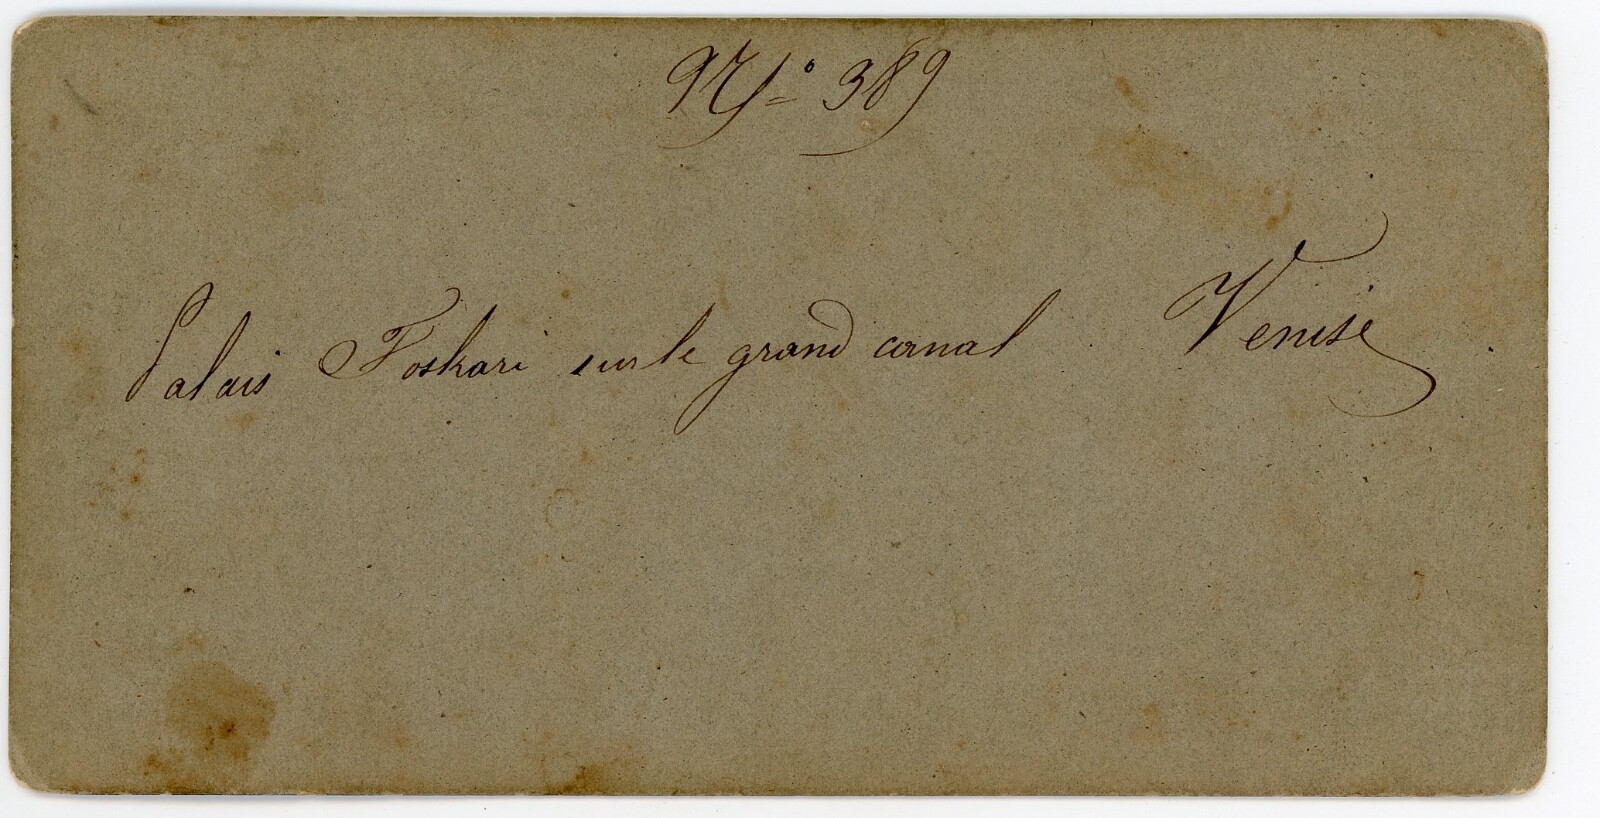 N° 389
Palais Foskari sur le grand canal Venise